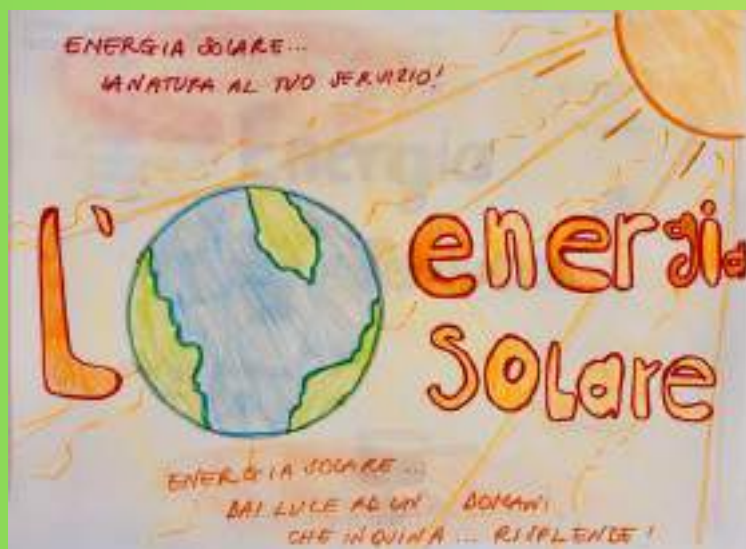 ENERGIA SOLARE...
LA NATURA AL TUO SERVIZIO!
Energia
L' energia
SOLare
ENERGIA SOLARE...
DAI LUCE AD UN DOMANI
CHE INQUINA... RISPLENDE!